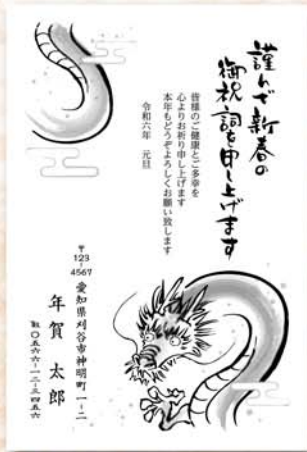 謹んで新春の
御祝詞を申し上げます
皆様のご健康とご多幸を
心よりお祈り申し上げます
本年もどうぞよろしくお願い致します
令和六年　元旦
〒123-4567
愛知県刈谷市神明町一-二
年賀　太郎
℡〇五六六-一二-三四五六